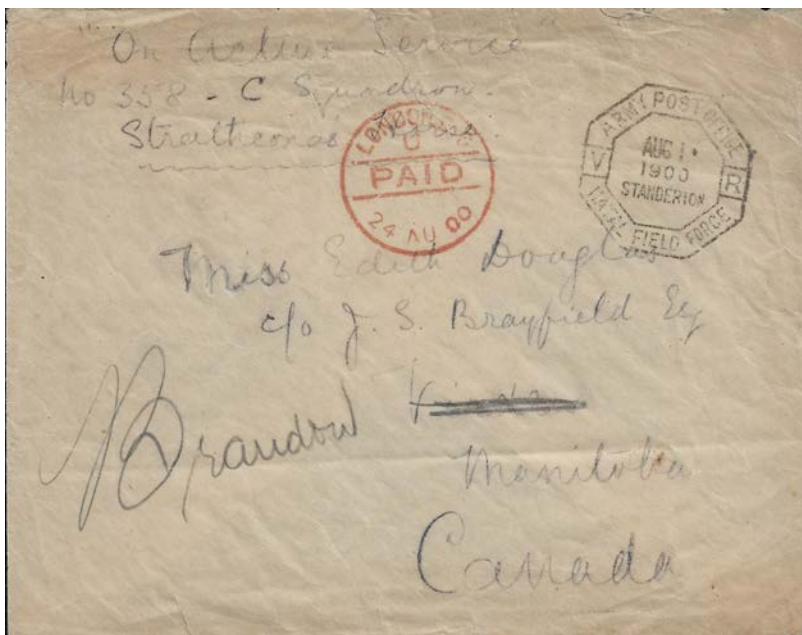 "On Active Service"
No 358 - C Squadron.
Strathcona's Horse.
LONDON
U
PAID
24 AU 00
ARMY POST OFFICE
V R
AUG 1
1900
STANDERTON
NATAL FIELD FORCE
Miss Edith Douglas
c/o J. S. Brayfield Esq
Brandon
Manitoba
Canada